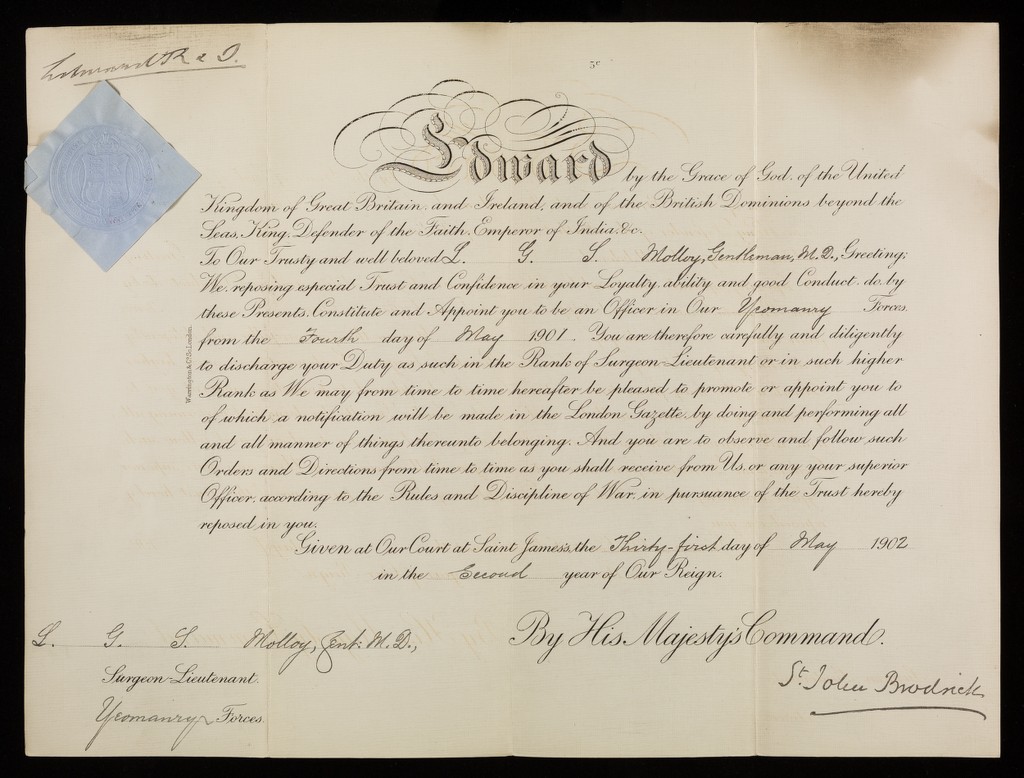 Edward R & I.
Edward by the Grace of God, of the United
Kingdom of Great Britain, and Ireland, and of the British Dominions beyond the
Seas, King, Defender of the Faith, Emperor of India, &c.
To Our Trusty and well beloved L. G. S. Molloy, Gentleman, M.D., Greeting;
We, reposing especial Trust and Confidence in your Loyalty, ability and good Conduct, do, by
these Presents, Constitute and Appoint you to be an Officer in Our Yeomanry Forces,
from the Fourth day of May 1901. You are therefore carefully and diligently
to discharge your Duty as such in the Rank of Surgeon-Lieutenant or in such higher
Rank as We may from time to time hereafter be pleased to promote or appoint you to
of which a notification will be made in the London Gazette, by doing and performing all
and all manner of things thereunto belonging. And you are to observe and follow such
Orders and Directions from time to time as you shall receive from Us, or any your superior
Officer, according to the Rules and Discipline of War, in pursuance of the Trust hereby
reposed in you.
Given at Our Court at Saint James's, the Thirty-first day of May 1902
in the Second year of Our Reign.
By His Majesty's Command.
St. John Brodrick
L. G. S. Molloy, Gent: M.D.,
Surgeon-Lieutenant.
Yeomanry Forces.